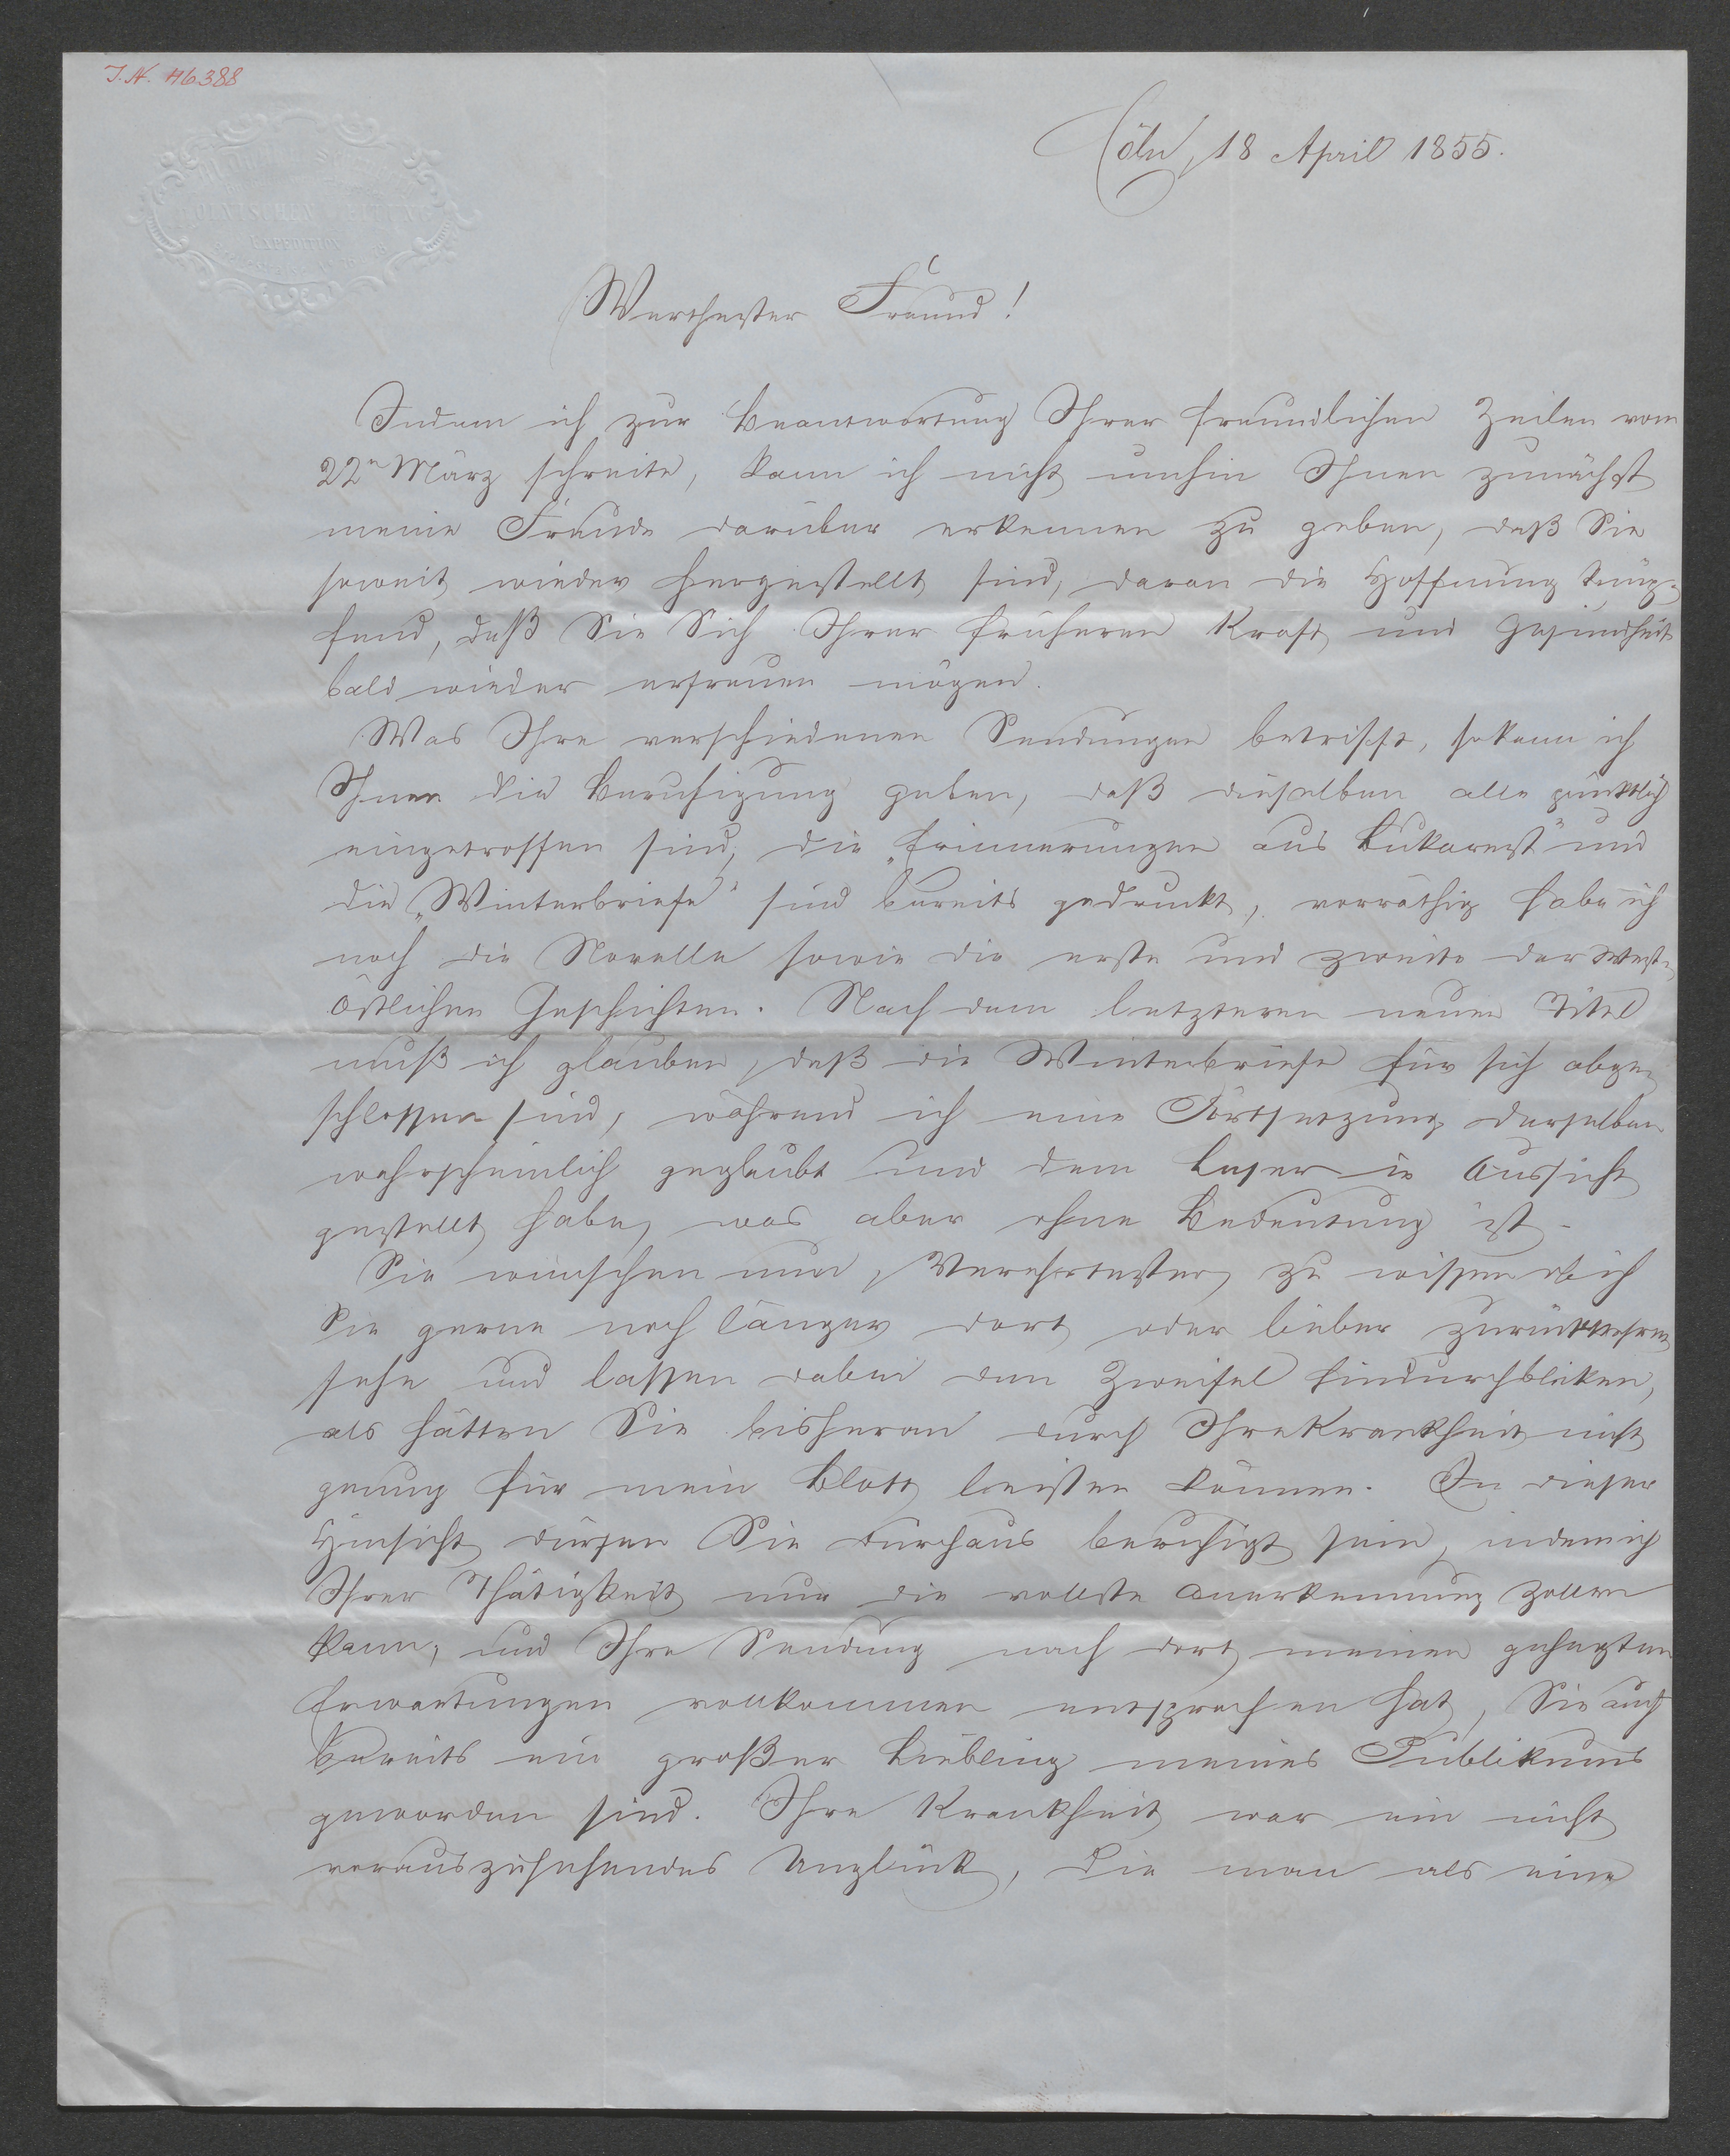 I. N. 46.388
KÖLNISCHEN ZEITUNG
EXPEDITION
Cöln, 18 April 1855.
Werthester Freund!
Indem ich zur Beantwortung Ihrer freundlichen Zeilen vom
22n März schreite, kann ich nicht umhin Ihnen zunächst
meine Freude darüber erkennen zu geben, daß Sie
soweit wieder hergestellt sind, daran die Hoffnung knüp-
fend, daß Sie Sich Ihrer früheren Kraft und Gesundheit
bald wieder erfreuen mögen.
Was Ihre verschiedenen Sendungen betrifft, so kann ich
Ihnen die Beruhigung geben, daß dieselben alle pünktlich
eingetroffen sind, die „Erinnerungen aus Bukarest" und
die „Winterbriefe" sind bereits gedruckt, vorräthig habe ich
noch die Novelle sowie die erste und zweite der West-
östlichen Geschichten. Nach dem letzteren neuen Titel
muß ich glauben, daß die Winterbriefe für sich abge-
schlossen sind, während ich eine Fortsetzung derselben
wahrscheinlich geglaubt und dem Leser in Aussicht
gestellt habe, was aber ohne Bedeutung ist.
Sie wünschen nun, Verehrtester, zu wissen ob ich
Sie gerne noch länger dort oder lieber zurückkehren
sehe und lassen dabei den Zweifel hindurchblicken,
als hätten Sie bisheran durch Ihre Krankheit nicht
genug für mein Blatt leisten können. In dieser
Hinsicht dürfen Sie durchaus beruhigt sein, indem ich
Ihrer Thätigkeit nur die vollste Anerkennung zollen
kann, und Ihre Sendung nach dort meinen gehegten
Erwartungen vollkommen entsprochen hat, Sie auch
bereits ein großer Liebling meines Publikums
geworden sind. Ihre Krankheit war ein nicht
vorauszusehendes Unglück, die man als eine